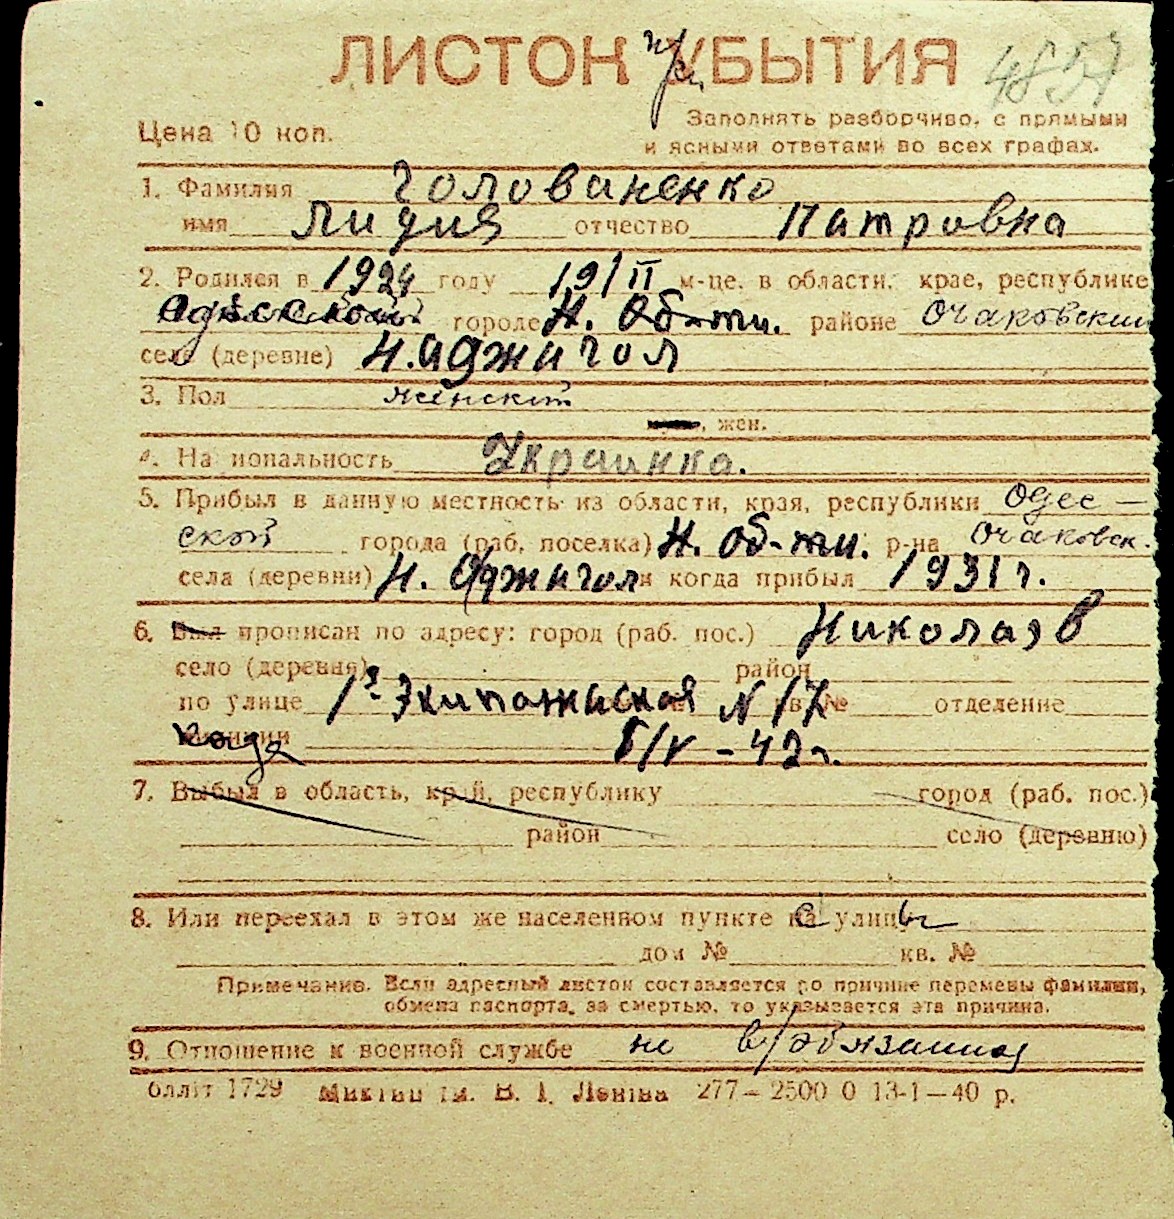 ЛИСТОК УБЫТИЯ 4857
Цена 10 коп.
Заполнять разборчиво, с прямыми
и ясными ответами во всех графах.
1. Фамилия Голованенко
имя Лидия отчество Патровна
2. Родился в 1924 году 19/II м-це, в области, крае, республике
Одесской городе Н. Об-ти. районе Очаковский
село (деревне) Н. Аджигол
3. Пол женский
, жен.
4. На иональность Украинка.
5. Прибыл в данную местность из области, края, республики Одес-
ской города (раб. поселка) Н. об-ти. р-на Очаковск.
села (деревни) Н. Аджигол и когда прибыл 1931 г.
6. Был прописан по адресу: город (раб. пос.) Николаев
село (деревня) район
по улице 1я Экипажеская N 17 кв. № отделение
5/V - 42 г.
7. Выбыл в область, край, республику город (раб. пос.)
район село (деревню)
8. Или переехал в этом же населенном пункте с улицы
дом № кв. №
Примечание. Если адресный листок составляется по причине перемены фамилии,
обмена паспорта, за смертью, то указывается эта причина.
9. Отношение к военной службе не в/обязанная
1729 ім. В. І. Леніна 277—2500 0 13-1—40 р.